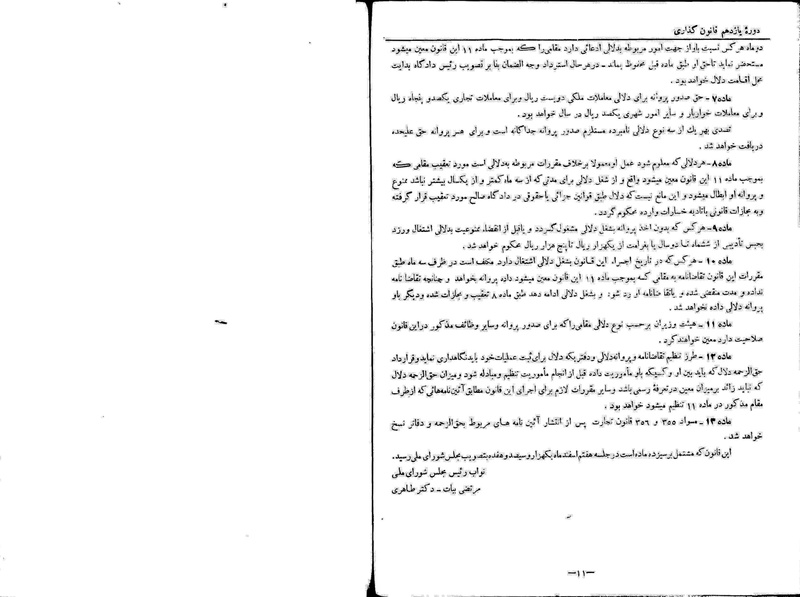 دورهٔ یازدهم قانون گذاری
دو ماه هر کس نسبت باو از جهت امور مربوطه بدلالی ادعائی دارد مقامی را که بموجب ماده ۱۱ این قانون معین میشود
مستحضر نماید تا حق او طبق ماده قبل محفوظ بماند ـ در هر حال استرداد وجه الضمان بنا بر تصویب رئیس دادگاه بدایت
محل اقامت دلال خواهد بود .
ماده ۷ ـ حق صدور پروانه برای دلالی معاملات ملکی دویست ریال و برای معاملات تجاری یکصد و پنجاه ریال
و برای معاملات خواربار و سایر امور شهری یکصد ریال در سال خواهد بود .
تصدی بهر یك از سه نوع دلالی نامبرده مستلزم صدور پروانه جداگانه است و برای هر پروانه حق علیحده
دریافت خواهد شد .
ماده ۸ ـ هر دلالی که معلوم شود عمل او معمولا بر خلاف مقررات مربوطه بدلالی است مورد تعقیب مقامی که
بموجب ماده ۱۱ این قانون معین میشود واقع و از شغل دلالی برای مدتی که از سه ماه کمتر و از یکسال بیشتر نباشد ممنوع
و پروانه او ابطال میشود و این مانع نیست که دلال طبق قوانین جزائی یا حقوقی در دادگاه صالح مورد تعقیب قرار گرفته
و به مجازات قانونی یا تادیه خسارات وارده محکوم گردد .
ماده ۹ ـ هر کس که بدون اخذ پروانه بشغل دلالی مشغول گردد و یا قبل از انقضاء ممنوعیت بدلالی اشتغال ورزد
بحبس تأدیبی از ششماه تا دو سال یا بغرامت از یکهزار ریال تا پنج هزار ریال محکوم خواهد شد .
ماده ۱۰ ـ هر کس که در تاریخ اجراء این قانون بشغل دلالی اشتغال دارد مکلف است در ظرف سه ماه طبق
مقررات این قانون تقاضانامه به مقامی که بموجب ماده ۱۱ این قانون معین میشود داده پروانه بخواهد و چنانچه تقاضا نامه
نداده و مدت منقضی شده و یا تقاضانامه او رد شود و بشغل دلالی ادامه دهد طبق ماده ۸ تعقیب و مجازات شده و دیگر باو
پروانه دلالی داده نخواهد شد .
ماده ۱۱ ـ هیئت وزیران بر حسب نوع دلالی مقامی را که برای صدور پروانه و سایر وظائف مذکور در این قانون
صلاحیت دارد معین خواهند کرد .
ماده ۱۲ ـ طرز تنظیم تقاضانامه و پروانه دلالی و دفتریکه دلال برای ثبت عملیات خود باید نگاهداری نماید و قرارداد
حق الزحمه دلال که باید بین او و کسیکه باو مأموریت داده قبل از انجام مأموریت تنظیم و مبادله شود و میزان حق الزحمه دلال
که نباید زائد بر میزان معین در تعرفهٔ رسمی باشد و سایر مقررات لازم برای اجرای این قانون مطابق آئین نامه هائی که از طرف
مقام مذکور در ماده ۱۱ تنظیم میشود خواهد بود .
ماده ۱۳ ـ مواد ۳۵۵ و ۳۵۶ قانون تجارت پس از انتشار آئین نامه های مربوط بحق الزحمه و دفاتر نسخ
خواهد شد .
این قانون که مشتمل بر سیزده ماده است در جلسه هفتم اسفند ماه یکهزار و سیصد و هفده بتصویب مجلس شورای ملی رسید .
نواب رئیس مجلس شورای ملی
مرتضی بیات ـ دکتر طاهری
ـ۱۱ـ